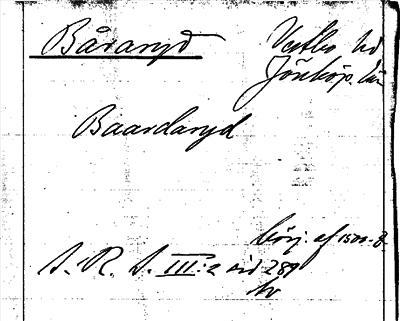 Båraryd
Vestbo hd
Jönköp. län
Baardaryd
börj. af 1500-t.
S. R. S. III:2 sid 289